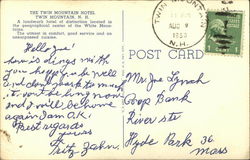 THE TWIN MOUNTAIN HOTEL
TWIN MOUNTAIN, N. H.
A landmark hotel of distinction located in
the geographical center of the White Moun-
tains.
The utmost in comfort, good service and an
unsurpassed cuisine.
TWIN MOUNTAIN
AUG 9
1953
N.H.
POST CARD
Hello Joe!
how is things with
you hope you be well
and
it wont be long
and I will be home
again I am O.K.
Best regards
Yours
Fritz Zahn.
Mr Joe Lynch
Coop Bank
River st
Hyde Park 36
Mass